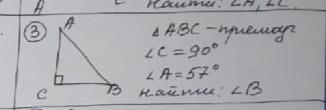 Найти: ∠A, ∠C.
③
A
C
B
△ABC – прямоуг
∠C = 90°
∠A = 57°
Найти: ∠B